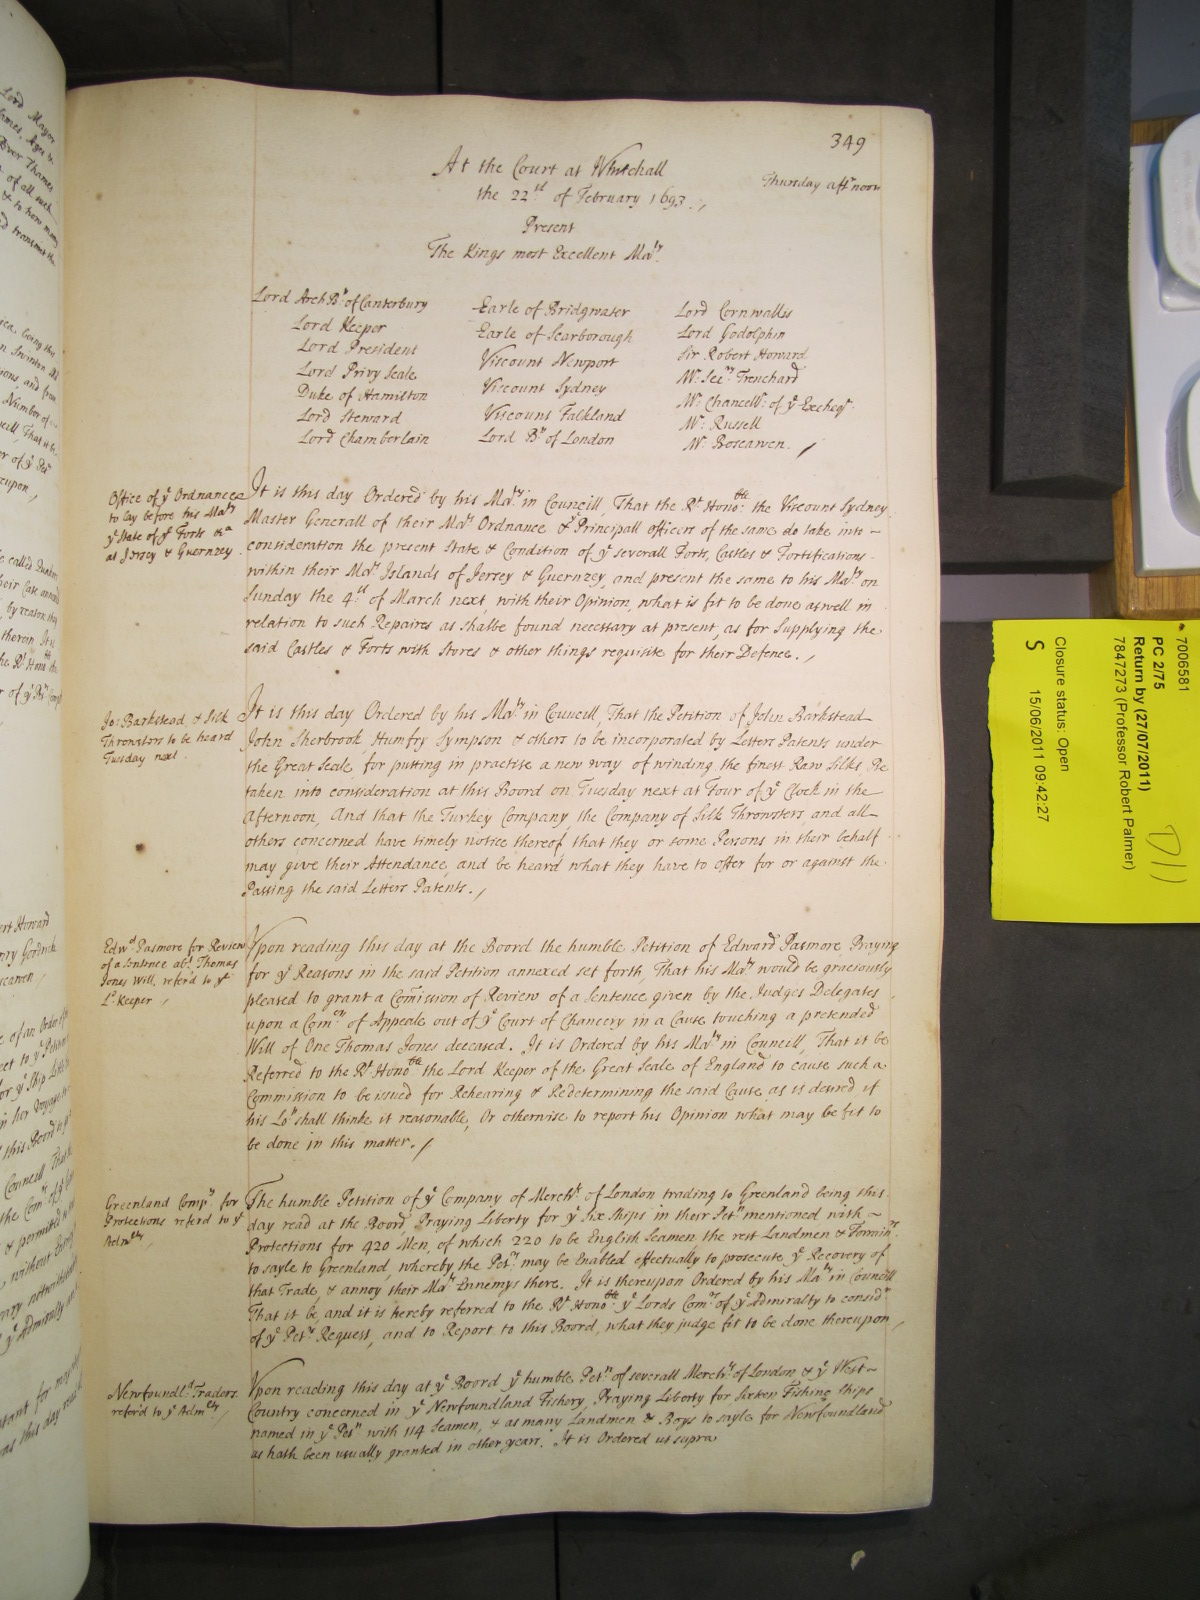 349
At the Court at Whitehall
Thursday aft'noon
the 22d of February 1693.
Present
The Kings most Excellent Ma'ty
Lord ArchBp of Canterbury
Lord Keeper
Lord President
Lord Privy Seale
Duke of Hamilton
Lord Steward
Lord Chamberlain
Earle of Bridgwater
Earle of Scarborough
Viscount Newport
Viscount Sydney
Viscount Falkland
Lord Bp of London
Lord Cornwallis
Lord Godolphin
Sir Robert Howard
Mr. Secry Trenchard
Mr. Chancellr of ye Excheqr
Mr. Russell
Mr. Boscawen.
Office of ye Ordnance
to lay before his Maty
ye State of ye Forts &ca
at Jersey & Guernzey
It is this day Ordered by his Maty in Councill, That the Rt Honoble the Viscount Sydney
Master Generall of their Mats Ordnance & ye Principall officers of the same do take into
consideration the present State & Condition of ye severall Forts, Castles & Fortifications
within their Mats Islands of Jersey & Guernzey, and present the same to his Maty on
Sunday the 4th of March next, with their Opinion, what is fit to be done aswell in
relation to such Repaires as shalbe found necessary at present, as for Supplying the
said Castles & Forts with Stores & other things requisite for their Defence.
Jo: Barkstead, & Silk
Throwsters to be heard
Tuesday next.
It is this day Ordered by his Maty in Councill, That the Petition of John Barkstead
John Sherbrook Humfry Sympson & others to be incorporated by Letters Patents under
the Great Seale, for putting in practise a new way of winding the finest Raw Silks, Be
taken into consideration at this Board on Tuesday next at Four of ye Clock in the
afternoon, And that the Turkey Company, the Company of Silk Throwsters, and all
others concerned have timely notice thereof, that they or some Persons in their behalf
may give their Attendance, and be heard what they have to offer for or against the
Passing the said Letters Patents.
Edwd Pasmore for Review
of a Sentence abt Thomas
Jones Will, referd to ye
Ld Keeper
Upon reading this day at the Board the humble Petition of Edward Pasmore Praying
for ye Reasons in the said Petition annexed set forth, That his Maty would be graciously
pleased to grant a Comission of Review of a Sentence given by the Judges Delegates
upon a Comon of Appeale out of ye Court of Chancery in a Cause touching a pretended
Will of One Thomas Jones deceased. It is Ordered by his Maty in Councill, That it be
Referred to the Rt Honoble the Lord Keeper of the Great Seale of England to cause such a
Commission to be issued for Rehearing & Redetermining the said Cause, as is desired, if
his Lop shall thinke it reasonable, Or otherwise to report his Opinion what may be fit to
be done in this matter.
Greenland Compy for
Protections referd to ye
Admlty
The humble Petition of ye Company of Merchts of London trading to Greenland being this
day read at the Board, Praying Liberty for ye Six Ships in their Petn mentioned with
Protections for 420 Men, of which 220 to be English Seamen the rest Landmen & Forrainrs
to sayle to Greenland, whereby the Petrs may be Enabled effectually to prosecute ye Recovery of
that Trade, & annoy their Mats Ennemys there. It is thereupon Ordered by his Maty in Councill
That it be, and it is hereby referred to the Rt Honoble ye Lords Comrs of ye Admiralty to considr
of ye Petrs Request, and to Report to this Board, what they judge fit to be done thereupon,
Newfoundld Traders
referd to ye Admlty
Upon reading this day at ye Board ye humble Petn of severall Merchts of London & ye West
Country concerned in ye Newfoundland Fishery, Praying Liberty for Sixteen Fishing Ships
named in ye Petn with 114 Seamen, & as many Landmen & Boys to sayle for Newfoundland
as hath been usually granted in other years. It is Ordered ut supra
7006581
PC 2/75
Return by (27/07/2011)
7847273 (Professor Robert Palmer)
Closure status: Open
S 15/06/2011 09:42:27